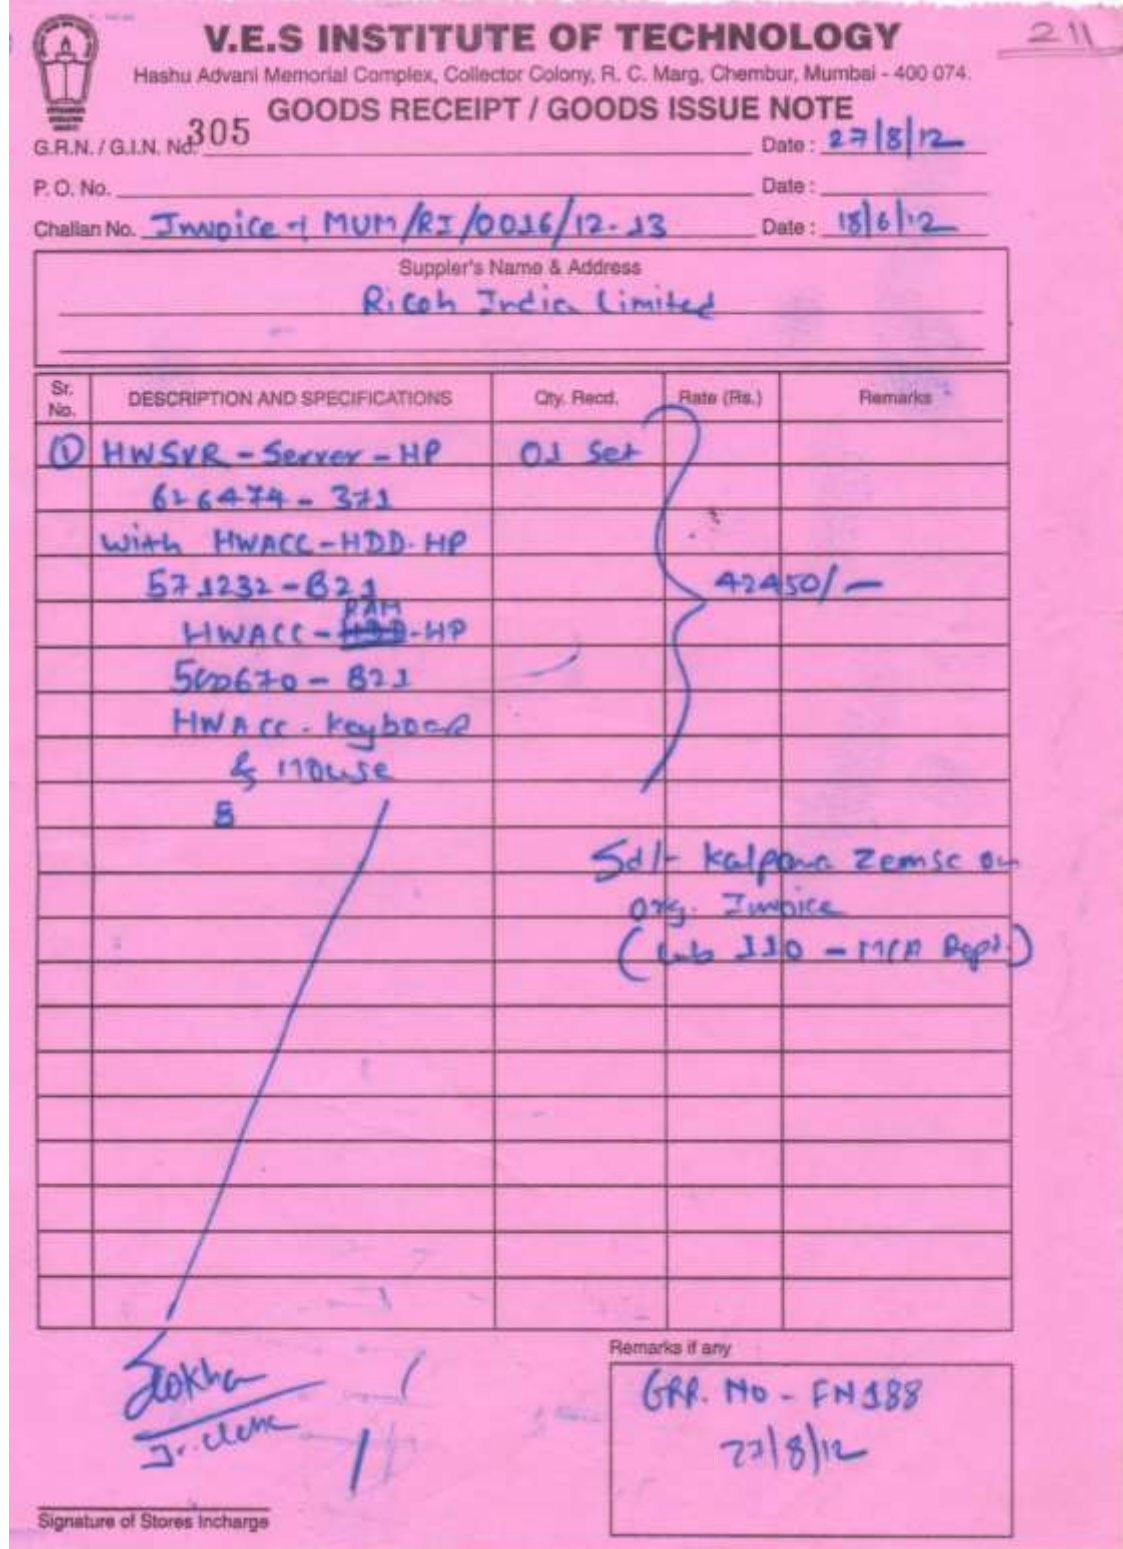 211
V.E.S INSTITUTE OF TECHNOLOGY
Hashu Advani Memorial Complex, Collector Colony, R. C. Marg, Chembur, Mumbai - 400 074.
GOODS RECEIPT / GOODS ISSUE NOTE
G.R.N. / G.I.N. No. 305 Date : 27/8/12
P. O. No. Date :
Challan No. Invoice - MUM/RI/0016/12-13 Date : 18/6/12
Suppler's Name & Address
Ricoh India Limited
Sr. No. DESCRIPTION AND SPECIFICATIONS Qty. Recd. Rate (Rs.) Remarks
① HWSVR - Server - HP 01 Set
626474 - 371
with HWACC - HDD - HP
571232 - B21 42450/-
RAM
HWACC - HDD - HP
500670 - B21
HWACC - Keyboar
& Mouse
B
Sd/- Kalpana Zemse on
org. Invoice
(Lab 110 - MCA Dept.)
Jr. Clerk
Remarks if any
GRR. No - FN188
27/8/12
Signature of Stores Incharge